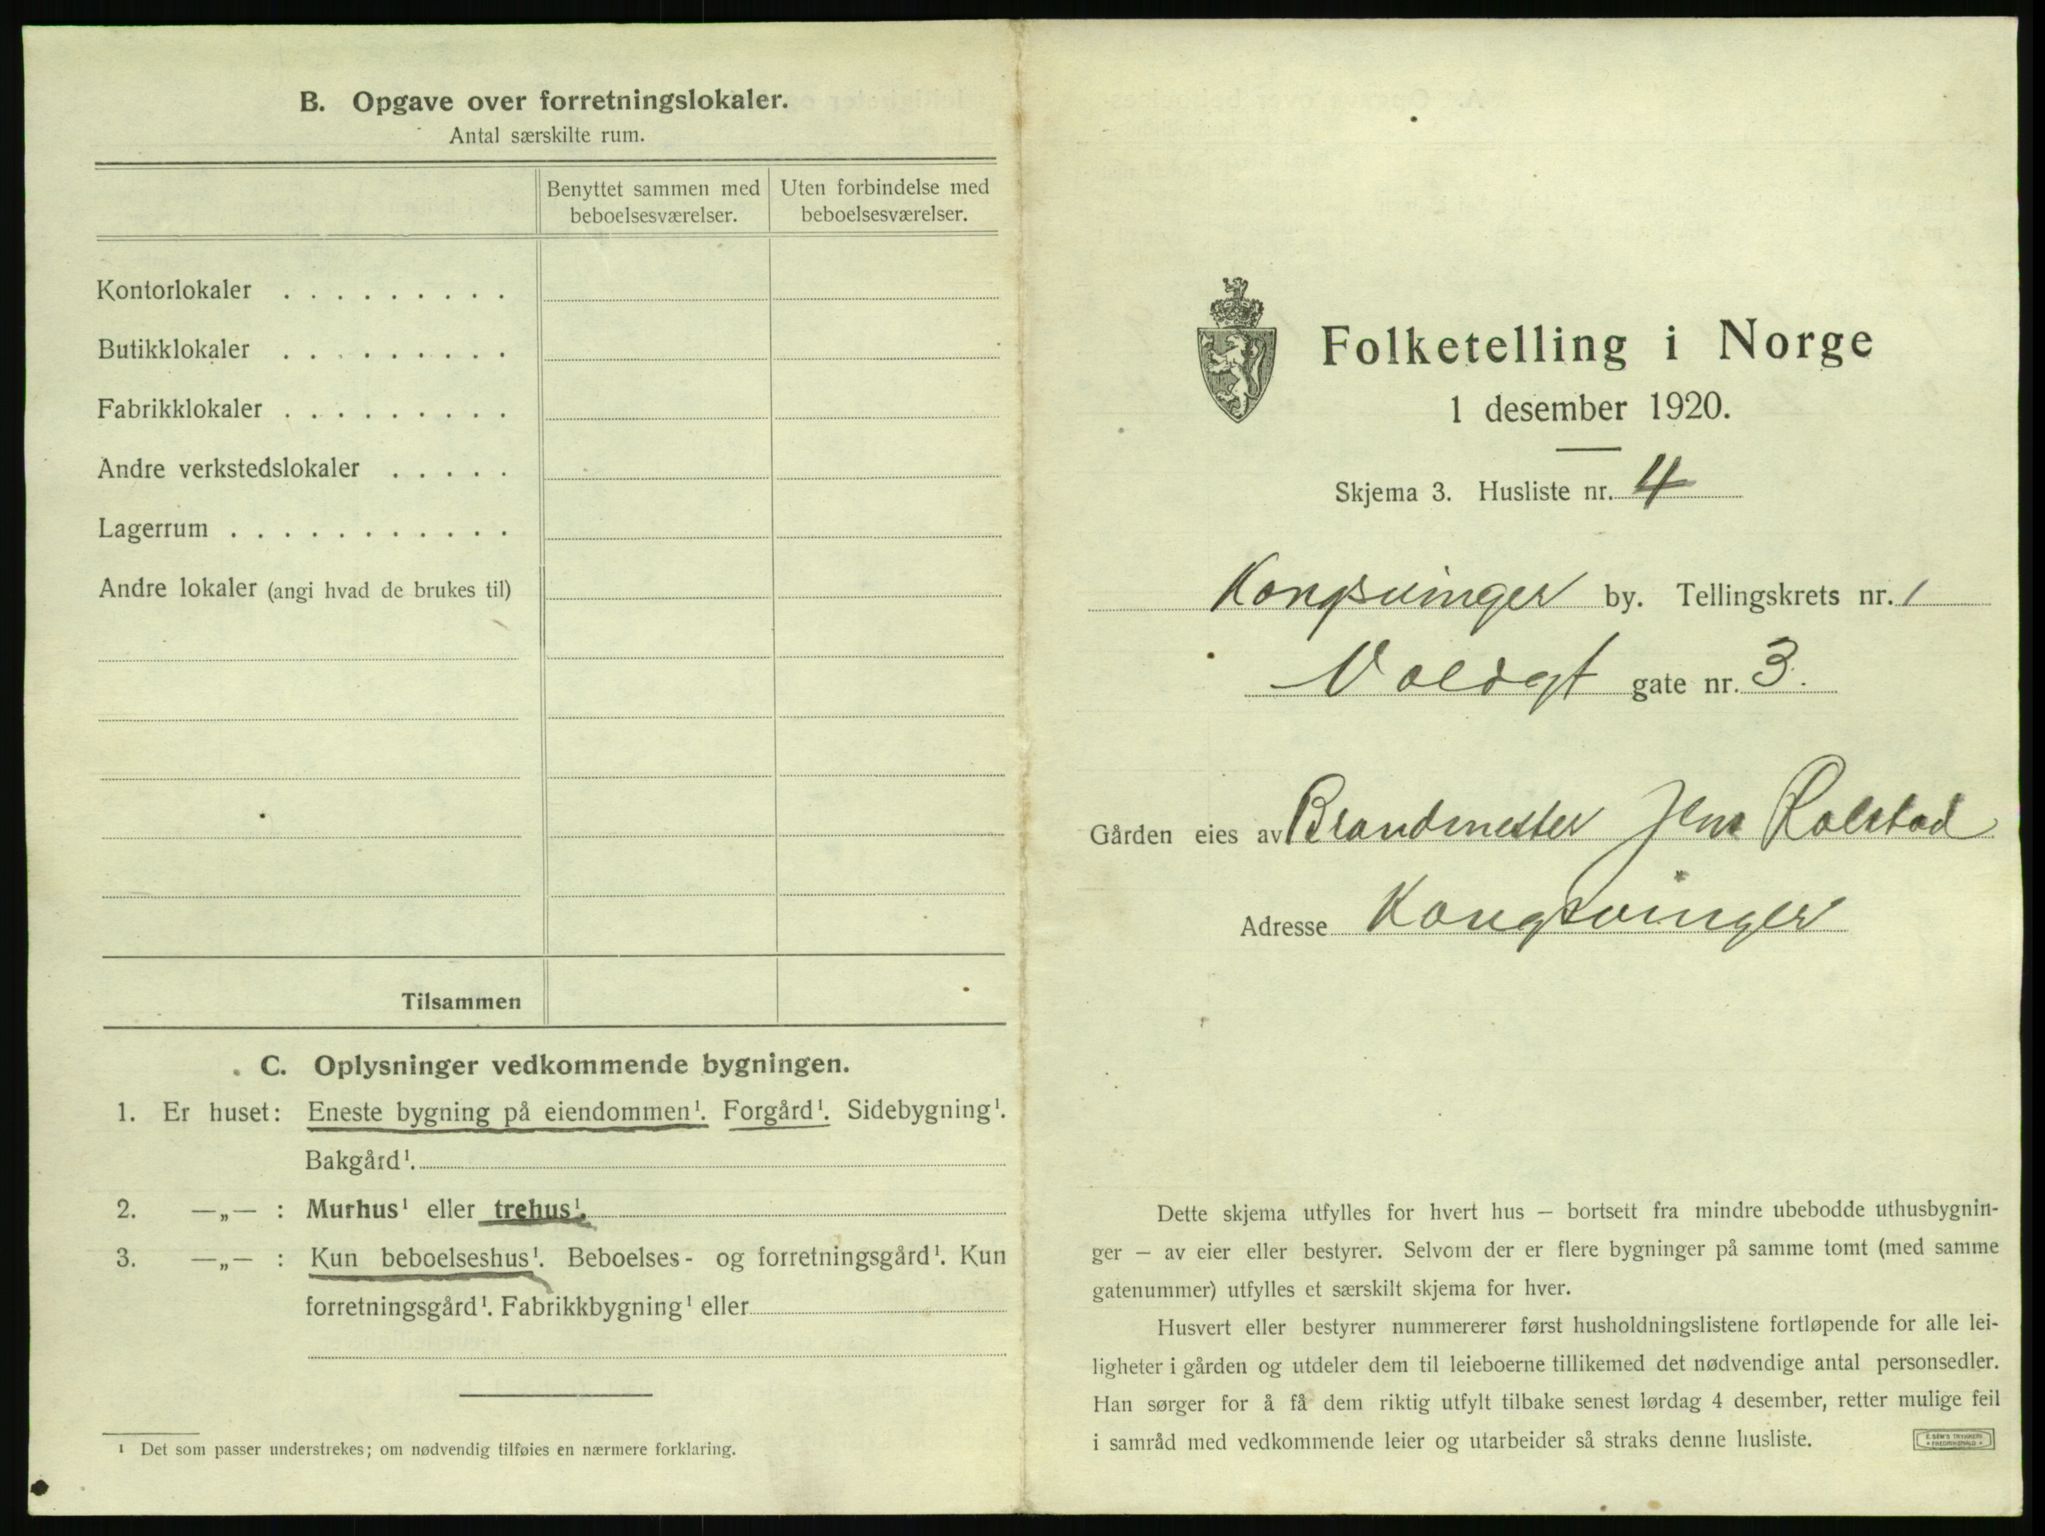 B. Opgave over forretningslokaler.
Antal særskilte rum.
Benyttet sammen med beboelsesværelser.
Uten forbindelse med beboelsesværelser.
Kontorlokaler . . . . . . . . .
Butikklokaler . . . . . . . . .
Fabrikklokaler . . . . . . . . .
Andre verkstedslokaler . . . . .
Lagerrum . . . . . . . . . . .
Andre lokaler (angi hvad de brukes til)
Tilsammen
C. Oplysninger vedkommende bygningen.
1. Er huset: Eneste bygning på eiendommen¹. Forgård¹. Sidebygning¹.
Bakgård¹.
2. —„— : Murhus¹ eller trehus¹.
3. —„— : Kun beboelseshus¹. Beboelses- og forretningsgård¹. Kun
forretningsgård¹. Fabrikkbygning¹ eller
¹ Det som passer understrekes; om nødvendig tilføies en nærmere forklaring.
Folketelling i Norge
1 desember 1920.
Skjema 3. Husliste nr. 4
Kongsvinger by. Tellingskrets nr. 1
Voldgt gate nr. 3.
Gården eies av Brandmester Jens Rolstad
Adresse Kongsvinger
Dette skjema utfylles for hvert hus — bortsett fra mindre ubebodde uthusbygnin-
ger — av eier eller bestyrer. Selvom der er flere bygninger på samme tomt (med samme
gatenummer) utfylles et særskilt skjema for hver.
Husvert eller bestyrer nummererer først husholdningslistene fortløpende for alle lei-
ligheter i gården og utdeler dem til leieboerne tillikemed det nødvendige antal personsedler.
Han sørger for å få dem riktig utfylt tilbake senest lørdag 4 desember, retter mulige feil
i samråd med vedkommende leier og utarbeider så straks denne husliste.